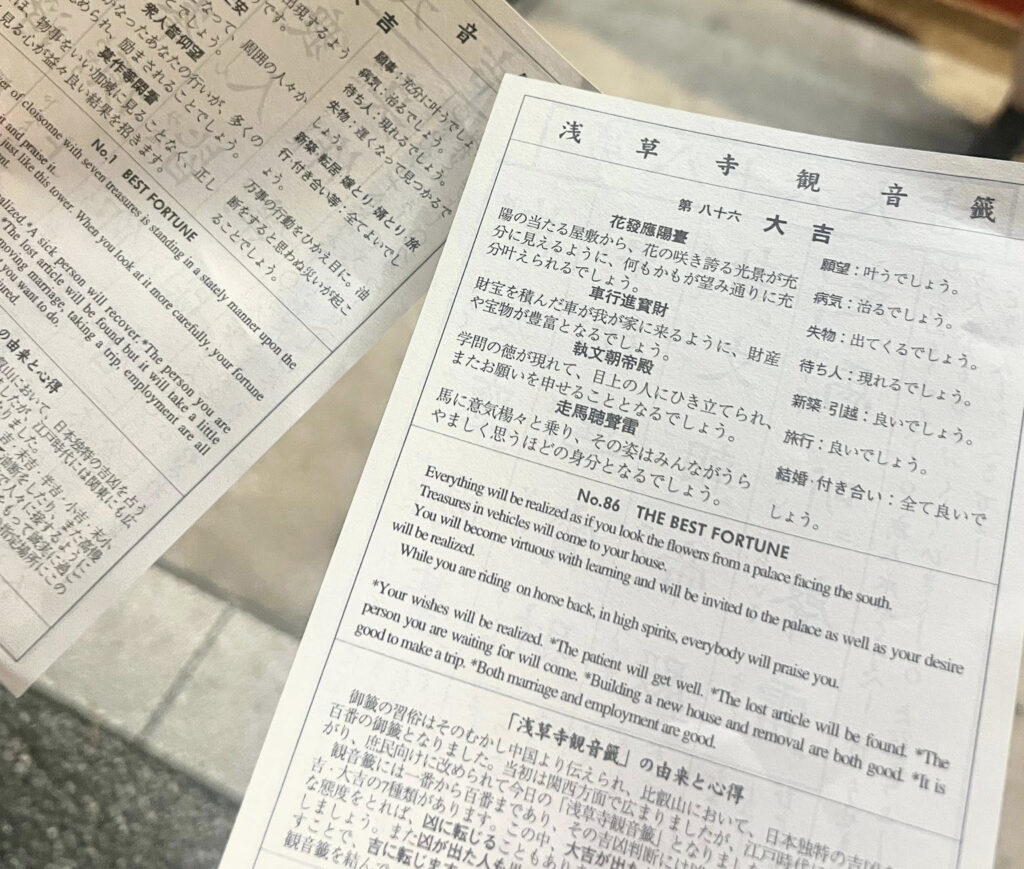 音
大吉
願事：充分に叶うでしょう。
病気：治るでしょう。
待ち人：現れるでしょう。
失物：遅くなって見つかるで
しょう。
新築・転居・嫁とり・婿とり・旅
行・付き合い等：全てよいでし
ょう。
衆人皆仰望
周囲の人々か
なったあなたの行いが、多くの
められ、励まされることでしょう。
莫作等閑看
物事をいい加減に見ることなく、正し
見る心が益々良い結果を招きます。
万事の行動をひかえ目に。油
断をすると思わぬ災いが起こ
ることでしょう。
No.1
BEST FORTUNE
er of cloisonne with seven treasures is standing in a stately manner upon the
and praise it.
just like this tower. When you look at it more carefully, your fortune
alized. *A sick person will recover. *The person you are
*The lost article will be found but it will take a little
moving marriage, taking a trip, employment are all
you want to do.
の由来と心得
叡山において、日本独特の吉凶を占う
江戸時代には関東にも広
浅草寺観音籤
第八十六 大吉
花發應陽臺
陽の当たる屋敷から、花の咲き誇る光景が充
分に見えるように、何もかもが望み通りに充
分叶えられるでしょう。
車行進寶財
財宝を積んだ車が我が家に来るように、財産
や宝物が豊富となるでしょう。
執文朝帝殿
学問の徳が現れて、目上の人にひき立てられ、
またお願いを申せることとなるでしょう。
走馬聴聲雷
馬に意気楊々と乗り、その姿はみんながうら
やましく思うほどの身分となるでしょう。
願望：叶うでしょう。
病気：治るでしょう。
失物：出てくるでしょう。
待ち人：現れるでしょう。
新築・引越：良いでしょう。
旅行：良いでしょう。
結婚・付き合い：全て良いで
しょう。
No.86 THE BEST FORTUNE
Everything will be realized as if you look the flowers from a palace facing the south.
Treasures in vehicles will come to your house.
You will become virtuous with learning and will be invited to the palace as well as your desire
will be realized.
While you are riding on horse back, in high spirits, everybody will praise you.
*Your wishes will be realized. *The patient will get well. *The lost article will be found. *The
person you are waiting for will come. *Building a new house and removal are both good. *It is
good to make a trip. *Both marriage and employment are good.
「浅草寺観音籤」の由来と心得
御籤の習俗はそのむかし中国より伝えられ、比叡山において、日本独特の吉凶を
百番の御籤となりました。当初は関西方面で広まりましたが、江戸時代に
がり、庶民向けに改められて今日の「浅草寺観音籤」となりました
観音籤には一番から百番まであり、その吉凶判断には
吉・大吉の7種類があります。この中、大吉が出た
な態度をとれば、凶に転じることもあり
しましょう。また凶が出た人も
すことで、吉に転じます
観音籤を結んで